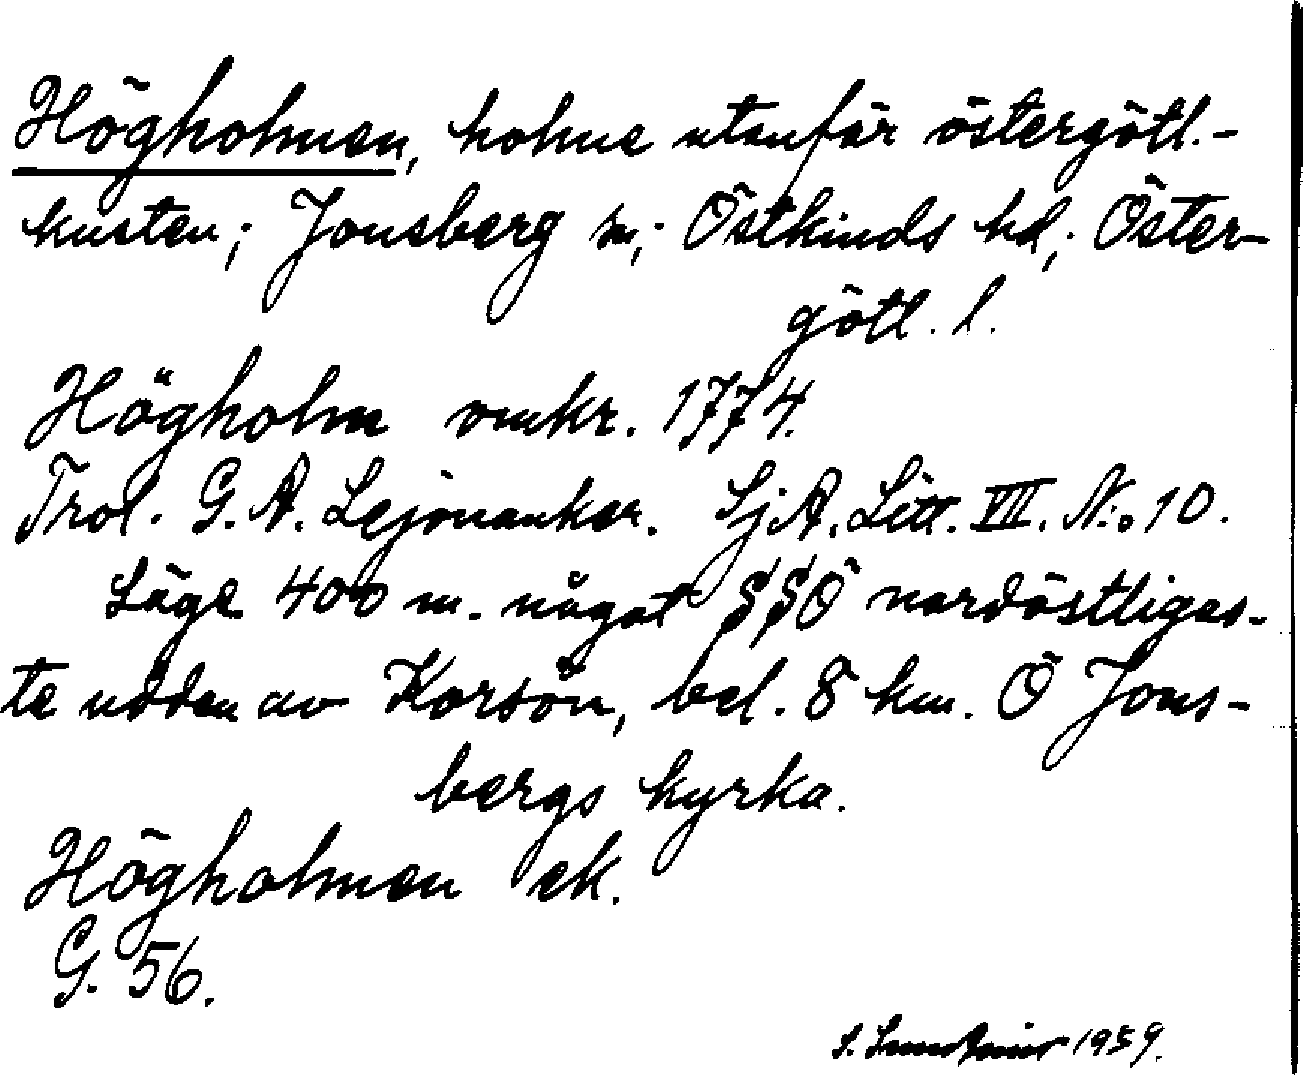 Högholmen, holme utanför östergötl.-
kusten; Jonsberg sn; Östkinds hd; Öster-
götl. l.
Högholm omkr. 1774.
Trol. G. A. Lejonanker. SjA. Litt. VII. N:o 10.
Läge 400 m. något SSÖ nordöstligas-
te udden av Korsön, bel. 8 km. Ö Jons-
bergs kyrka.
Högholmen ek.
G. 56.
S. 1959.